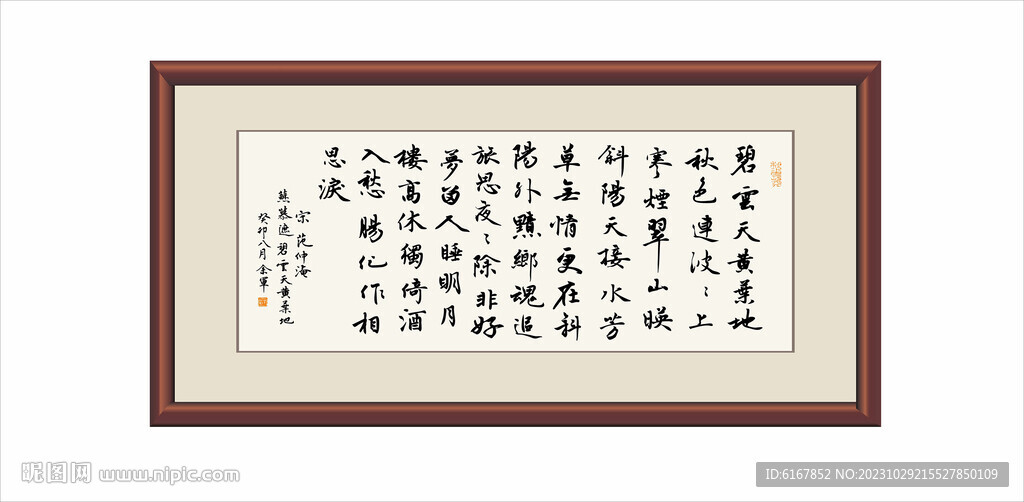 碧雲天黄葉地
秋色連波〻上
寒煙翠山映
斜陽天接水芳
草無情更在斜
陽外黯鄉魂追
旅思夜〻除非好
夢留人睡明月
樓高休獨倚酒
入愁腸化作相
思淚
宗范仲淹
蘇慕遮碧雲天黄葉地
癸卯八月余軍
昵图网 www.nipic.com
ID:6167852 NO:20231029215527850109